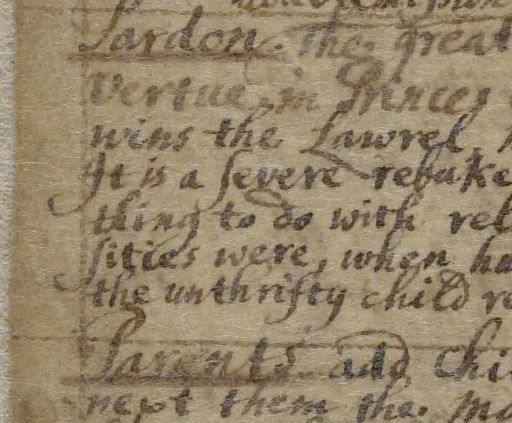 Pardon. the great
Vertue in Princes
wins the Lawrel
It is a severe rebuke
thing to do with rel
sities were, when ha
the unthrifty child re
Parents and Chi
next them the Ma